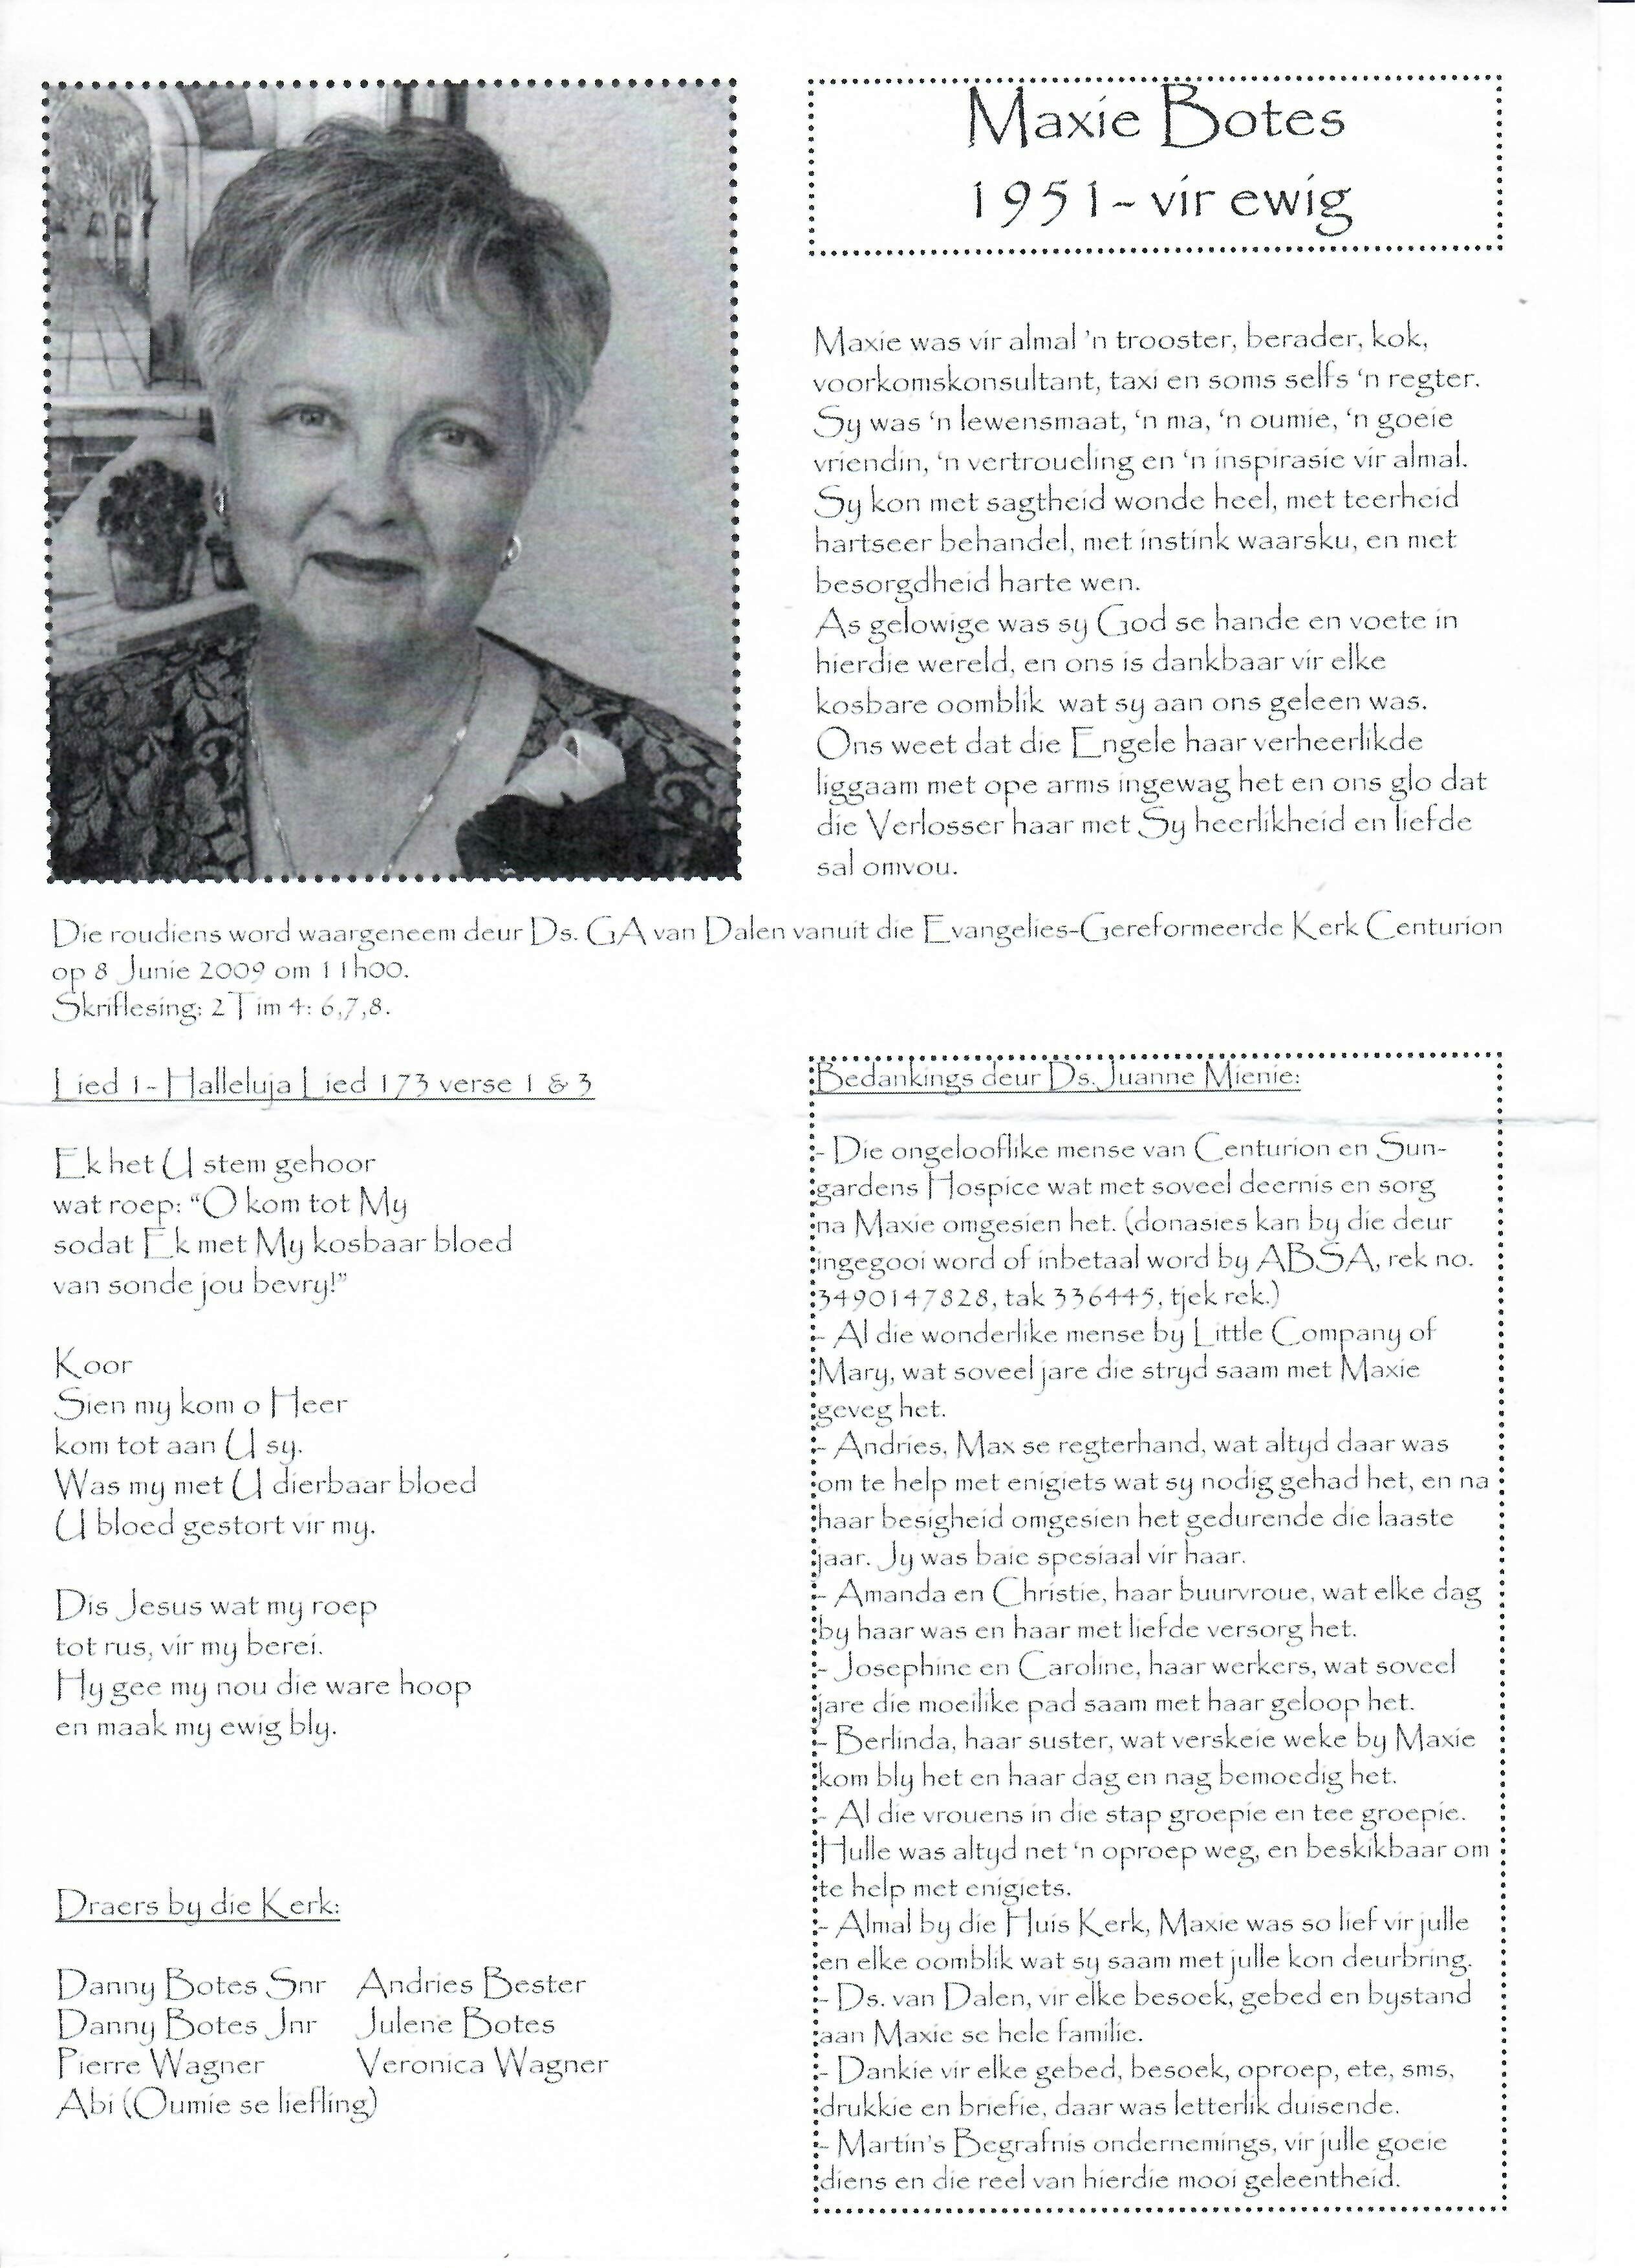 Maxie Botes
1951- vir ewig
Maxie was vir almal 'n trooster, berader, kok,
voorkomskonsultant, taxi en soms selfs 'n regter.
Sy was 'n lewensmaat, 'n ma, 'n oumie, 'n goeie
vriendin, 'n vertroueling en 'n inspirasie vir almal.
Sy kon met sagtheid wonde heel, met teerheid
hartseer behandel, met instink waarsku, en met
besorgdheid harte wen.
As gelowige was sy God se hande en voete in
hierdie wereld, en ons is dankbaar vir elke
kosbare oomblik wat sy aan ons geleen was.
Ons weet dat die Engele haar verheerlikde
liggaam met ope arms ingewag het en ons glo dat
die Verlosser haar met Sy heerlikheid en liefde
sal omvou.
Die roudiens word waargeneem deur Ds. GA van Dalen vanuit die Evangelies-Gereformeerde Kerk Centurion
op 8 Junie 2009 om 11h00.
Skriflesing: 2 Tim 4: 6,7,8.
Lied 1- Halleluja Lied 173 verse 1 & 3
Ek het U stem gehoor
wat roep: "O kom tot My
sodat Ek met My kosbaar bloed
van sonde jou bevry!"
Koor
Sien my kom o Heer
kom tot aan U sy.
Was my met U dierbaar bloed
U bloed gestort vir my.
Dis Jesus wat my roep
tot rus, vir my berei.
Hy gee my nou die ware hoop
en maak my ewig bly.
Draers by die Kerk:
Danny Botes Snr Andries Bester
Danny Botes Jnr Julene Botes
Pierre Wagner Veronica Wagner
Abi (Oumie se liefling)
Bedankings deur Ds. Juanne Mienie:
- Die ongelooflike mense van Centurion en Sun-
gardens Hospice wat met soveel deernis en sorg
na Maxie omgesien het. (donasies kan by die deur
ingegooi word of inbetaal word by ABSA, rek no.
3490147828, tak 336445, tjek rek.)
- Al die wonderlike mense by Little Company of
Mary, wat soveel jare die stryd saam met Maxie
geveg het.
- Andries, Max se regterhand, wat altyd daar was
om te help met enigiets wat sy nodig gehad het, en na
haar besigheid omgesien het gedurende die laaste
jaar. Jy was baie spesiaal vir haar.
- Amanda en Christie, haar buurvroue, wat elke dag
by haar was en haar met liefde versorg het.
- Josephine en Caroline, haar werkers, wat soveel
jare die moeilike pad saam met haar geloop het.
- Berlinda, haar suster, wat verskeie weke by Maxie
kom bly het en haar dag en nag bemoedig het.
- Al die vrouens in die stap groepie en tee groepie.
Hulle was altyd net 'n oproep weg, en beskikbaar om
te help met enigiets.
- Almal by die Huis Kerk, Maxie was so lief vir julle
en elke oomblik wat sy saam met julle kon deurbring.
- Ds. van Dalen, vir elke besoek, gebed en bystand
aan Maxie se hele familie.
- Dankie vir elke gebed, besoek, oproep, ete, sms,
drukkie en briefie, daar was letterlik duisende.
- Martin's Begrafnis ondernemings, vir julle goeie
diens en die reel van hierdie mooi geleentheid.